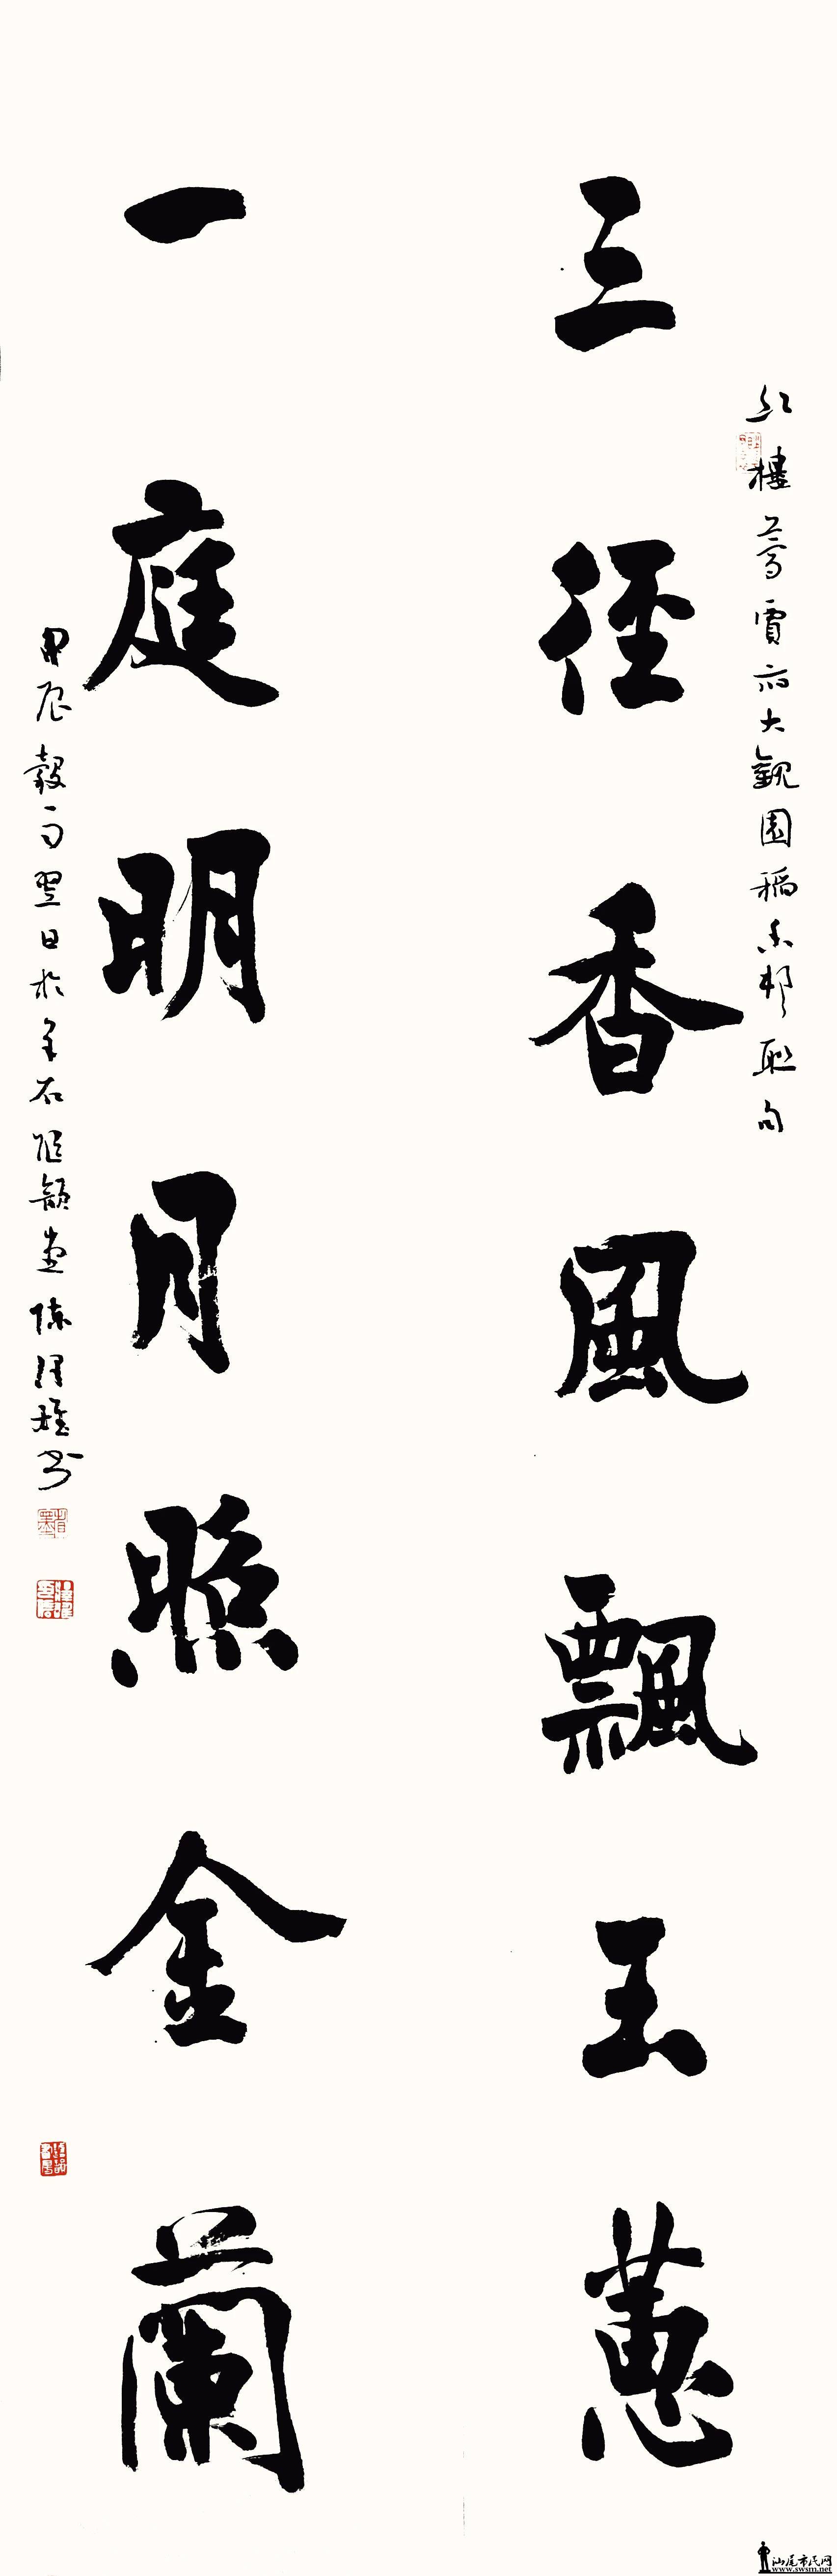 紅樓夢賈府大觀園稻香村聯句
三徑香風飄玉蕙
一庭明月照金蘭
甲辰穀雨翌日於金石韻堂陳雄書
汕尾市民网
www.swsm.net